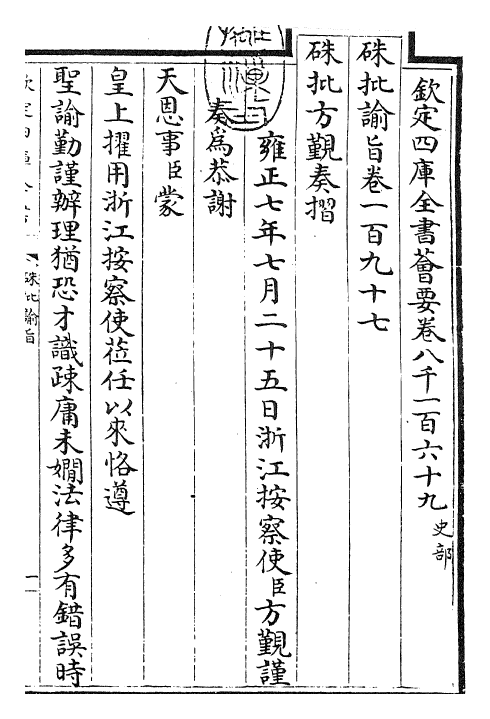 欽定四庫全書薈要卷八千一百六十九 史部
硃批諭旨卷一百九十七
硃批方觀奏摺
雍正七年七月二十五日浙江按察使臣方觀謹
奏為恭謝
天恩事臣蒙
皇上擢用浙江按察使莅任以來恪遵
聖諭勤謹辦理猶恐才識疎庸未嫺法律多有錯誤時
硃批諭旨
一